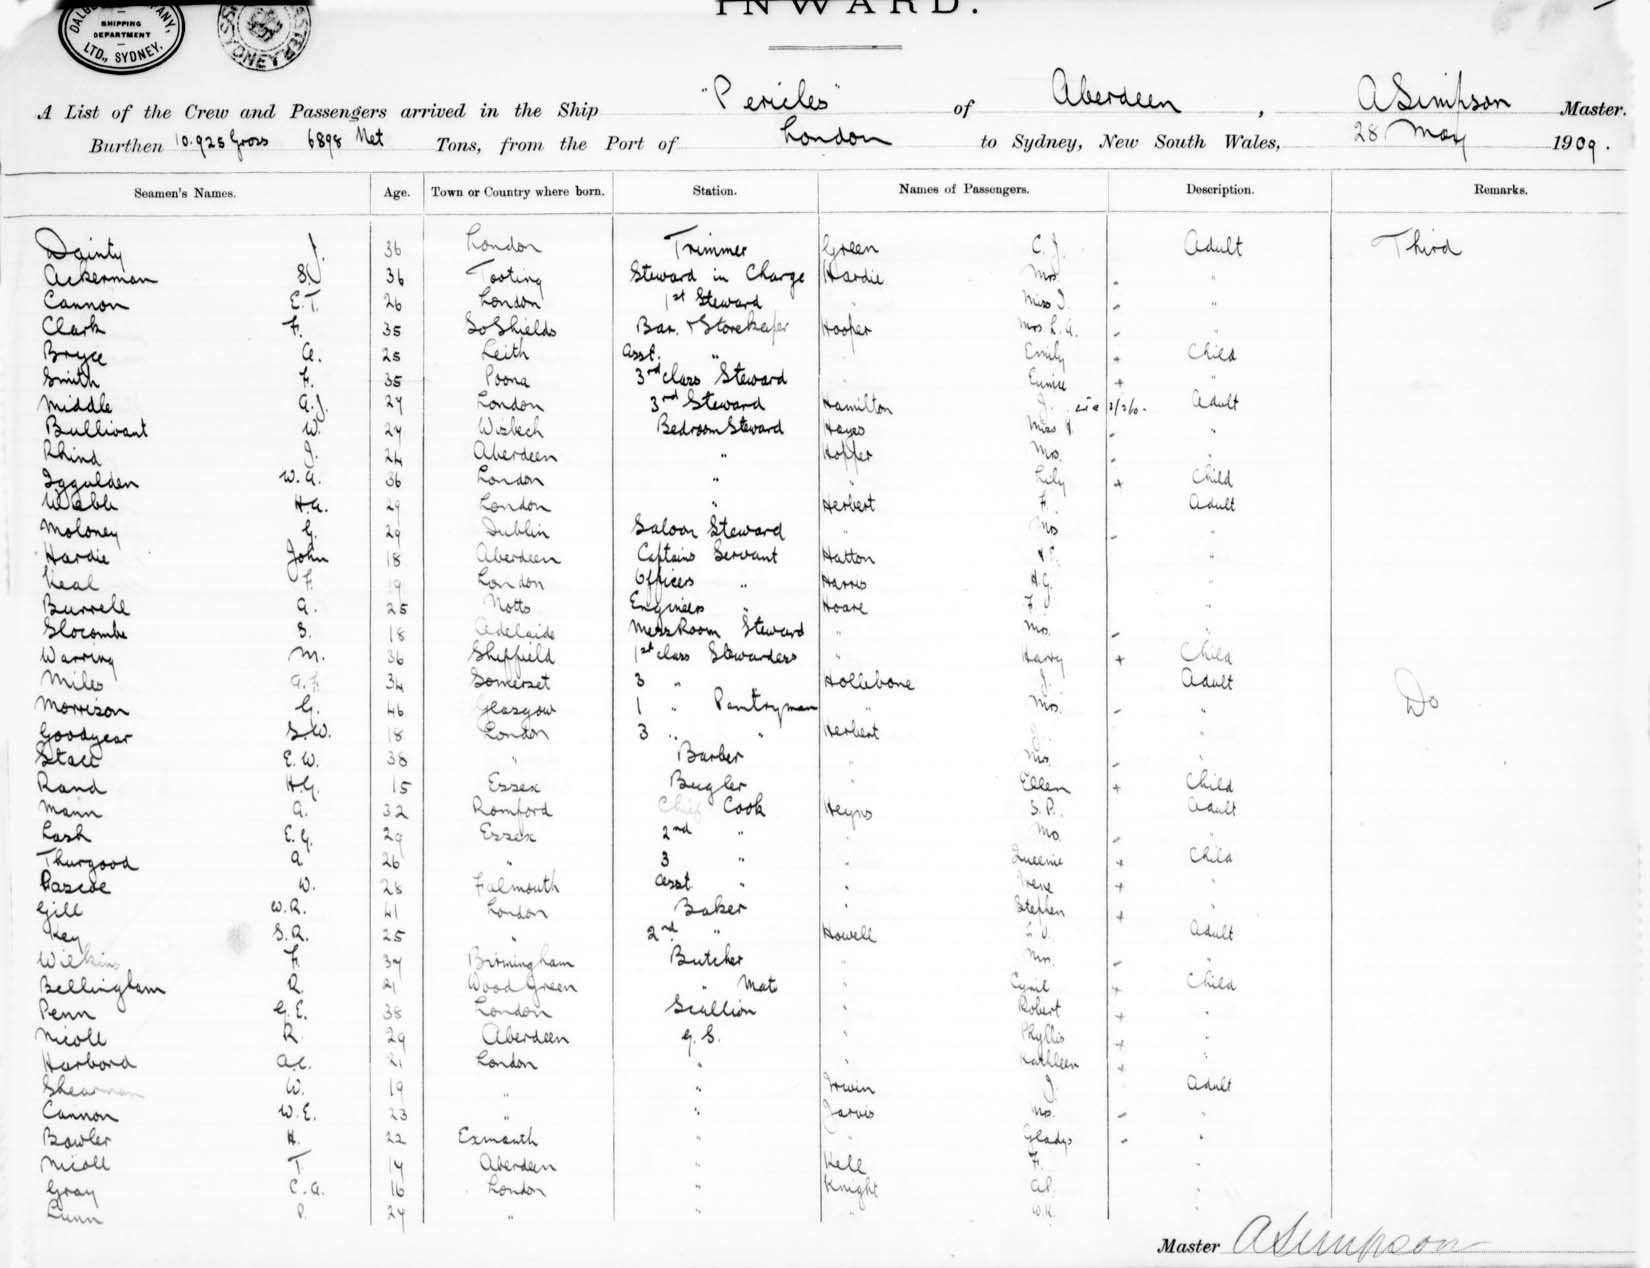 INWARD.
SHIPPING
DEPARTMENT
LTD., SYDNEY.
SYDNEY
A List of the Crew and Passengers arrived in the Ship "Pericles" of Aberdeen , A Simpson Master.
Burthen 10.925 Gross 6898 Net Tons, from the Port of London to Sydney, New South Wales, 28 May 1909.
Seamen's Names. Age. Town or Country where born. Station. Names of Passengers. Description. Remarks.
Dainty J. 36 London Trimmer Green C. J. Adult Third
Ackerman S. 36 Tooting Steward in Charge Hardie Mrs. "
Cannon E. T. 26 London 1st Steward " Miss J. "
Clark F. 35 So Shields Bar. & Storekeeper Hooper Mrs L. A. "
Bryce A. 25 Leith Asst. " " Emily + Child
Smith F. 35 Poona 3rd class Steward " Eunice + "
Middle A. J. 27 London 3rd Steward Hamilton J. Adult
Bullivant W. 27 Wisbech Bedroom Steward Hayes Miss H. "
Rhind J. 24 Aberdeen " Hopper Mrs. "
Iggulden W. A. 36 London " " Lily + Child
Webb H. A. 29 London " Herbert F. Adult
Moloney G. 29 Dublin Saloon Steward " Mrs "
Hardie John 18 Aberdeen Captains Servant Hatton "
Neal F. 19 London Officers " Harris H. G. "
Burrell A. 25 Notts Engineers " Hoare F. "
Slocombe S. 18 Adelaide Mess Room Steward " Mrs. "
Warring M. 36 Sheffield 1st class Stewardess " Harry + Child
Miles A. F. 34 Somerset 3 " Hollebone J. Adult
Morrison G. 46 Glasgow 1 " Pantryman " Mrs. " Do
Goodyear S. W. 18 London 3 " " Herbert J. "
Stace E. W. 38 " Barber " Mrs. "
Rand H. G. 15 Essex Bugler " Ellen + Child
Mann A. 32 Romford Chief Cook Heyns S. P. Adult
Lash E. G. 29 Essex 2nd " " Mrs. "
Thurgood A 26 " 3 " " Queenie + Child
Pascoe W. 28 Falmouth Asst " " Irene + "
Gill W. R. 41 London Baker " Stephen + "
Key S. R. 25 " 2nd " Howell Adult
Wilkins F. 37 Birmingham Butcher " Mrs. "
Bellingham R. 21 Wood Green " Mate " Cyril + Child
Penn G. E. 38 London Scullion " Robert + "
Nicoll R. 29 Aberdeen G. S. " Phyllis + "
Harbord A. C. 21 London " " Kathleen + "
Shearman W. 19 " " Irwin J. Adult
Cannon W. E. 23 " " Jarvis Mrs. "
Bowler H. 22 Exmouth " " Gladys "
Nicoll T. 17 Aberdeen " Kell F. "
Gray C. A. 16 London " Knight A. P. "
Lunn P. 27 " " " W. R. "
Master A Simpson